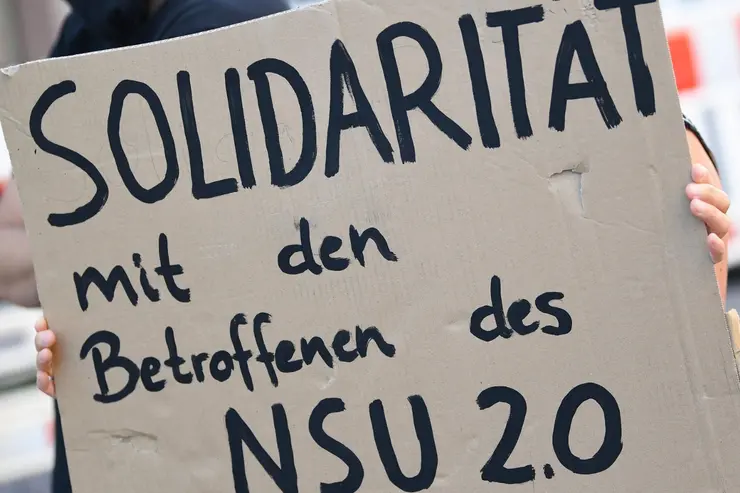 SOLIDARITÄT
mit den
Betroffenen des
NSU 2.0